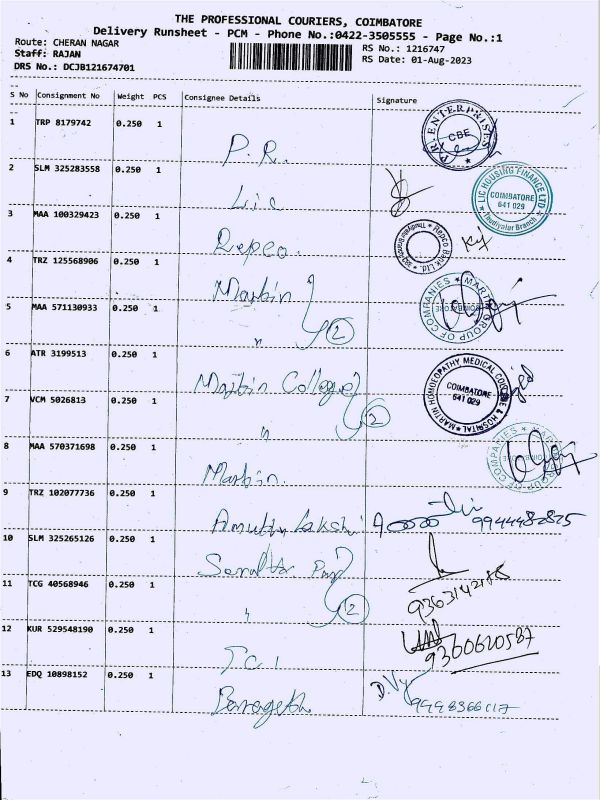 THE PROFESSIONAL COURIERS, COIMBATORE
Delivery Runsheet - PCM - Phone No.:0422-3505555 - Page No.:1
Route: CHERAN NAGAR
RS No.: 1216747
Staff: RAJAN
RS Date: 01-Aug-2023
DRS No.: DCJB121674701
S No Consignment No Weight PCS Consignee Details Signature
1 TRP 8179742 0.250 1 P.R. P.R. ENTERPRISES CBE
2 SLM 325283558 0.250 1 Lic LIC HOUSING FINANCE LTD COIMBATORE 641 029 Thudiyalur Branch
3 MAA 100329423 0.250 1 Repco Repco Bank Ltd.
4 TRZ 125568906 0.250 1 Martin MARTIN GROUP OF COMPANIES
5 MAA 571130933 0.250 1 " 2
6 ATR 3199513 0.250 1 Martin College MARTIN HOMOEOPATHY MEDICAL COLLEGE & HOSPITAL COIMBATORE 641 029
7 VCM 5026813 0.250 1 " 2
8 MAA 570371698 0.250 1 Martin GROUP OF COMPANIES
9 TRZ 102077736 0.250 1 9944482825
10 SLM 325265126 0.250 1
11 TCG 40568946 0.250 1 " 2
12 KUR 529548190 0.250 1 9360620587
13 EDQ 10898152 0.250 1